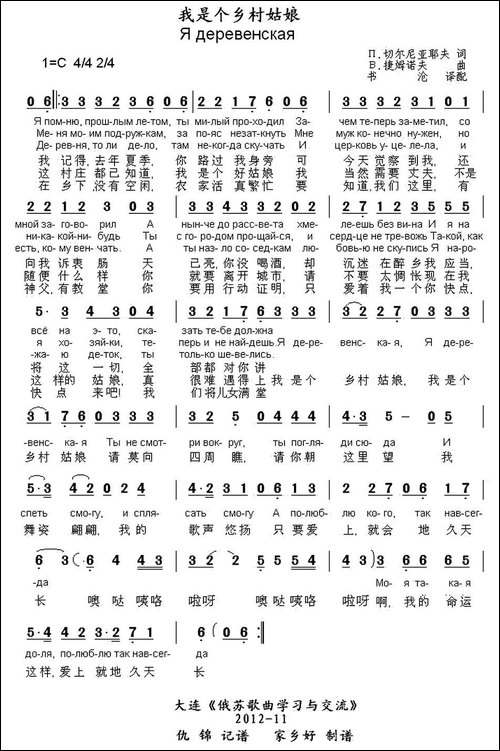 我是个乡村姑娘
Я деревенская
1=C 4/4 2/4
П.切尔尼亚耶夫 词
В.捷姆诺夫 曲
书 沦 译配
0 6 3 3 3 2 3 6 3 0 3 3 2 3 0 0 3 3 2 3 3 6 3 0 3
Я пом-ню, прош-лым ле-том, ты ми-лый про-хо-дил За- чем те-перь за-ме-тил, со
Ме-ня мо-им под-руж-кам, за по-яс не-заткнуть Мне муж ко-неч-но ну-жен, но
Де-рев-ня, то ли де-ло, там не-ког-да ску-чать И цер-ковь у-це-ле-ла, и
我 记得,去年 夏季, 你 路过 我身旁 可 今天 觉察 到我, 还
这 村庄 都已 知道, 我 是个 好姑娘 我 当然 需要 丈夫, 不是
在 乡下,没有 空闲, 农 家活 真繁忙 要 知道,我们 这里, 有
2 2 1 2 3 0 3 3 3 2 3 3 6 3 0 3 2 2 1 2 3 1 0 1
мной за-го-во-рил А нын-че до рас-све-та хме- ле-ешь без ви-на И я на
ни-ка-кой-ни-будь Ты с го-ро-дом про-щай-ся, и серд-це не тре-вожь Та-кой, как
есть, ко-му вен-чать. А ты наз-ло со-сед-кам лю- бовь-ю не ску-пись Я на-
向我 诉衷 肠 天 已亮,你没 喝酒, 却 沉迷 在醉 乡我 应当,
随便 什么 样 你 就要 离开 城市, 请 不要 太惆 怅现 在我
神父,有教 堂 你 要用 行动 证明, 只 爱着 我一 个你 快点,
5 3 4 0 3 4 2 3 2 1 7 6 3 3 3 2 2 7 0 3 2
всё на э-то, ска- зать те-бе дол-жна венс-ка-я, Я де-ре-
я хо-зяй-ки, те- перь и не най-дешь.Я де-ре-
-жа-ю де-ток, ты толь-ко ше-ве-лись.
将 这 一切, 全 部都 对你 讲
这样的 姑娘, 真 很难 遇得 上我 是个 乡村 姑娘, 我 是个
快点 来吧! 我 们将 儿女 满堂
3 1 1 7 6 0 3 3 3 3 2 5 0 4 4 4 4 3 5 - 0 5
-венс-ка-я Ты не смот- ри вок-руг, ты пог-ля- ди сю-да И
乡村 姑娘 请 莫向 四周 瞧, 请你朝 这里 望 我
5 3 4 2 0 2 4 3 2 3 1 0 3 3 3 2 3 2 1 7
спеть смо-гу, и спля- сать смо-гу А по-люб- лю ко-го, так нав-сег-
舞姿 翩翩, 我的 歌声 悠扬 只 要爱 上, 就会 地 久天
6 3 6 4 4 3 3 2 6 4 4 3 3 2 6 4 4 3 4 3 3 6 6 6 6
-да Мо-я та-ка-я
长 噢哒 咦咯 啦呀 噢哒 咦咯 啦呀 啊, 我的 命运
5 4 4 2 3 2 7 1 6 ( 0 6 )
до-ля, по-люб-лю так нав-сег- да
这样, 爱上 就地 久天 长
大连《俄苏歌曲学习与交流》
2012-11
仇 锦 记谱 家乡好 制谱